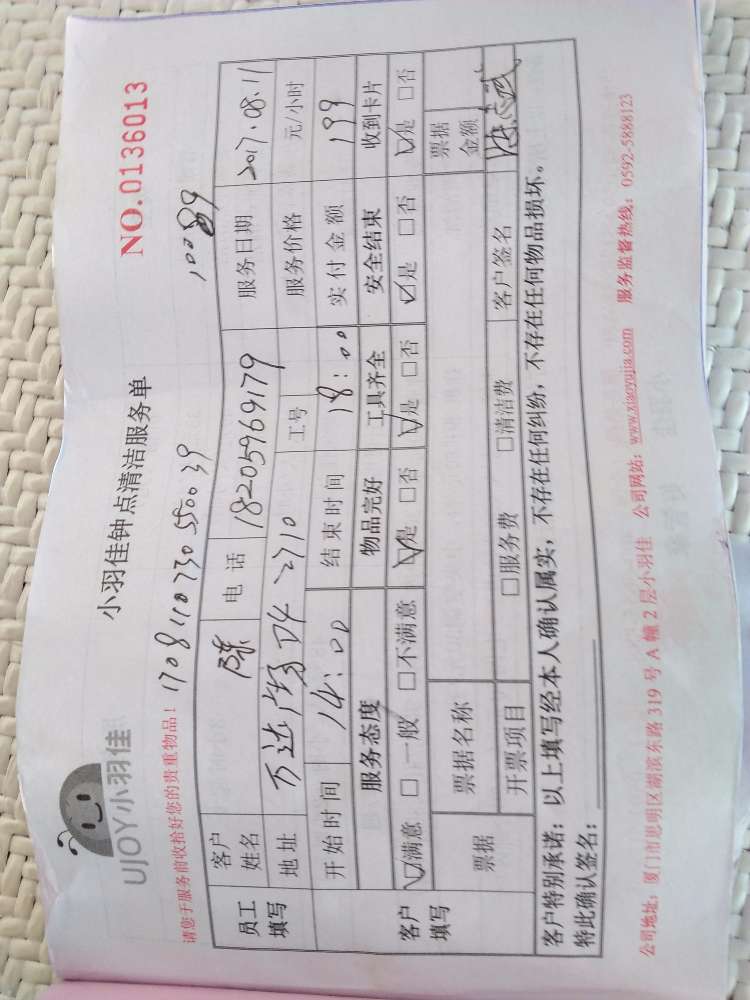 UJOY小羽佳
小羽佳钟点清洁服务单
NO.0136013
请您于服务前收拾好您的贵重物品!
1708110730550039
10089
员工填写
客户姓名 陈 电话 18205969179 服务日期 2017.08.11
地址 万达广场 D4 2710 工号 服务价格 元/小时
开始时间 14:00 结束时间 18:00 实付金额 199
客户填写
服务态度 物品完好 工具齐全 安全结束 收到卡片
☑满意 □一般 □不满意 ☑是 □否 ☑是 □否 ☑是 □否 ☑是 □否
票据 票据名称 票据金额
开票项目 □服务费 □清洁费 客户签名
客户特别承诺:以上填写经本人确认属实,不存在任何纠纷,不存在任何物品损坏。
特此确认签名:
公司地址:厦门市思明区湖滨东路319号A幢2层小羽佳 公司网站:www.xiaoyujia.com 服务监督热线:0592-5888123